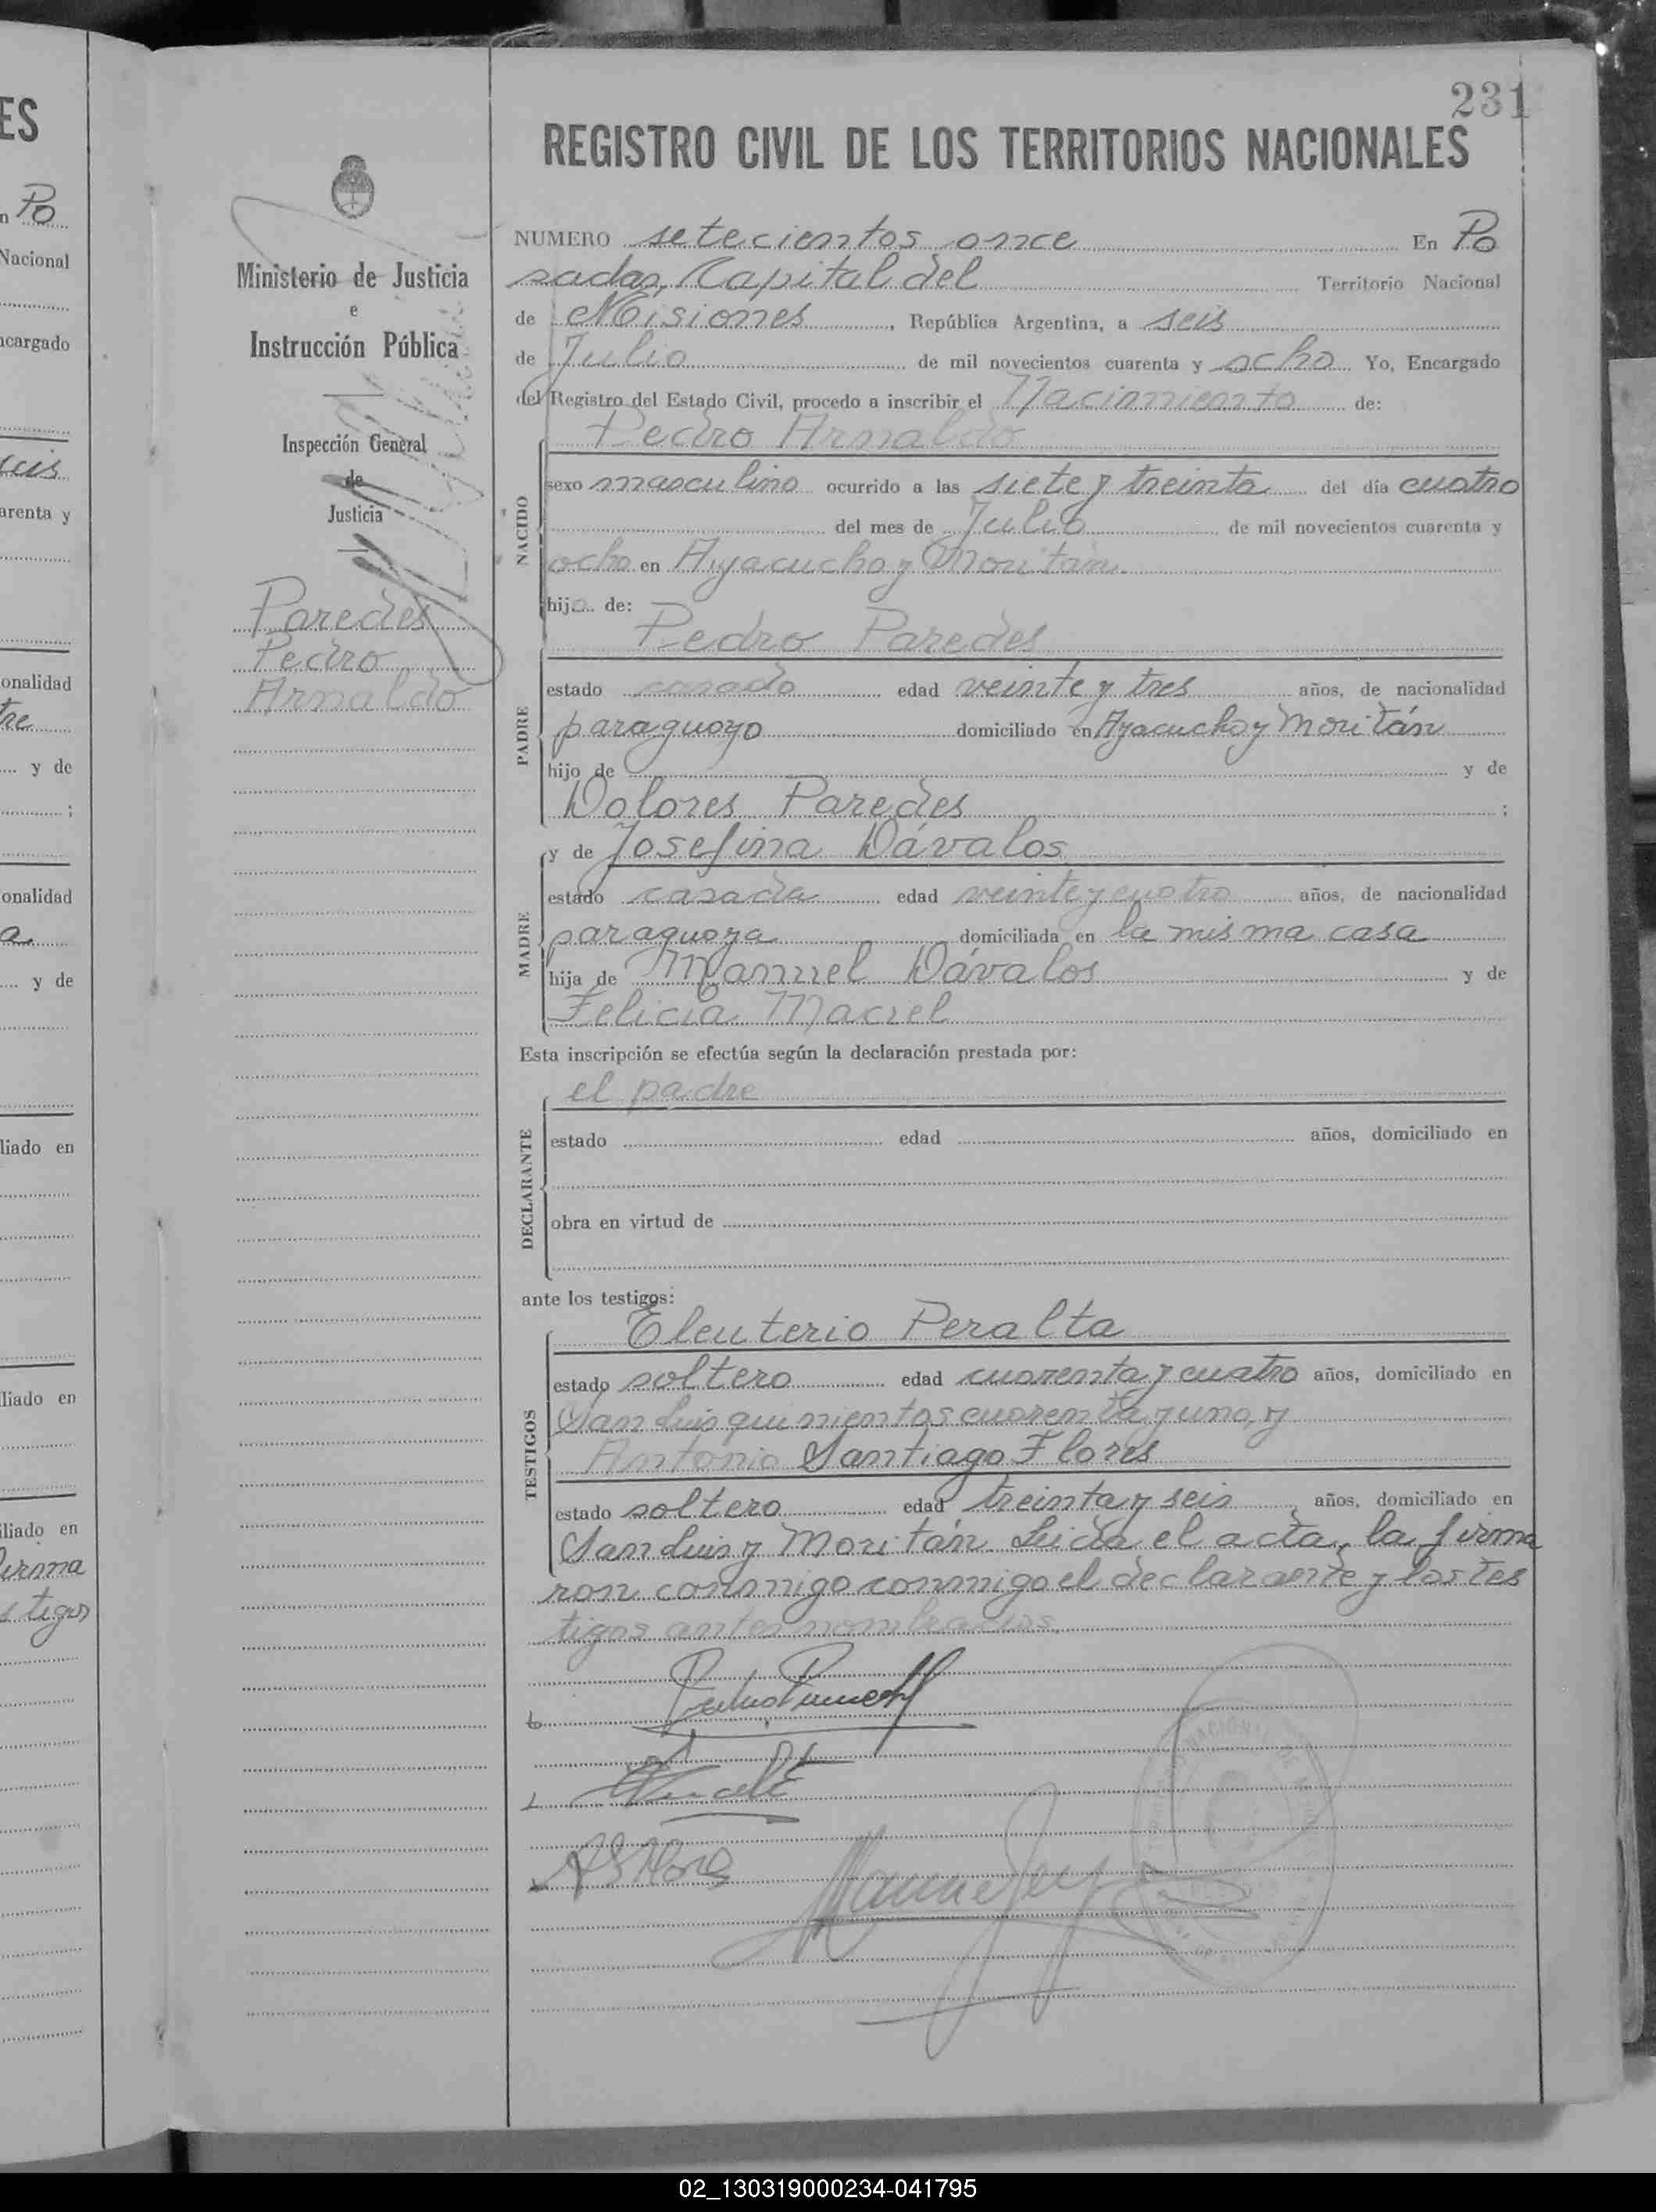 231
REGISTRO CIVIL DE LOS TERRITORIOS NACIONALES
NUMERO setecientos once En Po
sadas, Capital del Territorio Nacional
de Misiones, República Argentina, a seis
de Julio de mil novecientos cuarenta y ocho Yo, Encargado
del Registro del Estado Civil, procedo a inscribir el Nacimiento de:
Pedro Arnaldo
NACIDO
sexo masculino ocurrido a las siete y treinta del día cuatro
del mes de Julio de mil novecientos cuarenta y
ocho en Ayacucho y Moritán.
hijo de:
Pedro Paredes
PADRE
estado casado edad veinte y tres años, de nacionalidad
paraguayo domiciliado en Ayacucho y Moritán
hijo de y de
Dolores Paredes ;
y de Josefina Dávalos
MADRE
estado casada edad veinte y cuatro años, de nacionalidad
paraguaya domiciliada en la misma casa
hija de Manuel Dávalos y de
Felicia Maciel
Esta inscripción se efectúa según la declaración prestada por:
el padre
DECLARANTE
estado edad años, domiciliado en
obra en virtud de
ante los testigos:
Eleuterio Peralta
TESTIGOS
estado soltero edad cuarenta y cuatro años, domiciliado en
San Luis quinientos cuarenta y uno, y
Antonio Santiago Flores
estado soltero edad treinta y seis años, domiciliado en
San Luis y Moritán. Leída el acta, la firma
ron conmigo conmigo el declarante y los tes
tigos antes nombrados.
ASFlores
Ministerio de Justicia
e
Instrucción Pública
Inspección General
de
Justicia
Paredes
Pedro
Arnaldo
ES
n Po
Nacional
ncargado
seis
arenta y
onalidad
tre
y de
;
onalidad
a
y de
liado en
liado en
iliado en
firma
s tigos
02_130319000234-041795